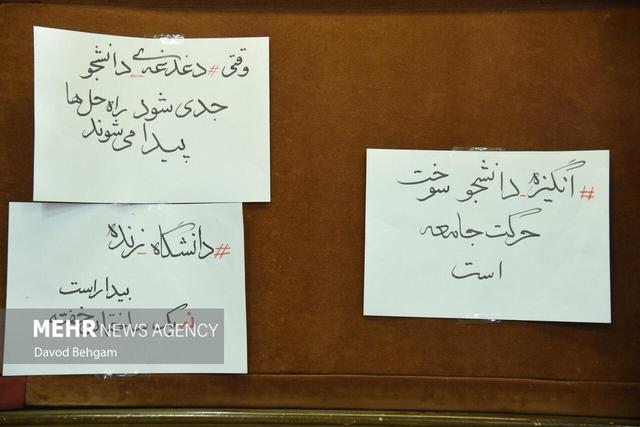 وقتی #دغدغه‌ی_دانشجو
جدی شود راه حل‌ها
پیدا می‌شوند
#انگیزه_دانشجو سوخت
حرکت جامعه
است
#دانشگاه_زنده
بیدار است
خفته
MEHR NEWS AGENCY
Davod Behgam